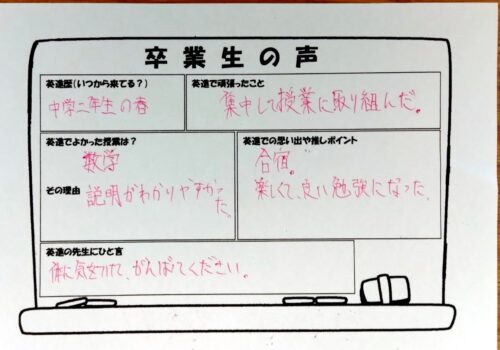 卒業生の声
英進歴(いつから来てる?)
中学二年生の春
英進で頑張ったこと
集中して授業に取り組んだ。
英進でよかった授業は?
数学
その理由 説明がわかりやすかっ
た。
英進での思い出や推しポイント
合宿。
楽しくて、良い勉強になった。
英進の先生にひと言
体に気をつけて、がんばてください。